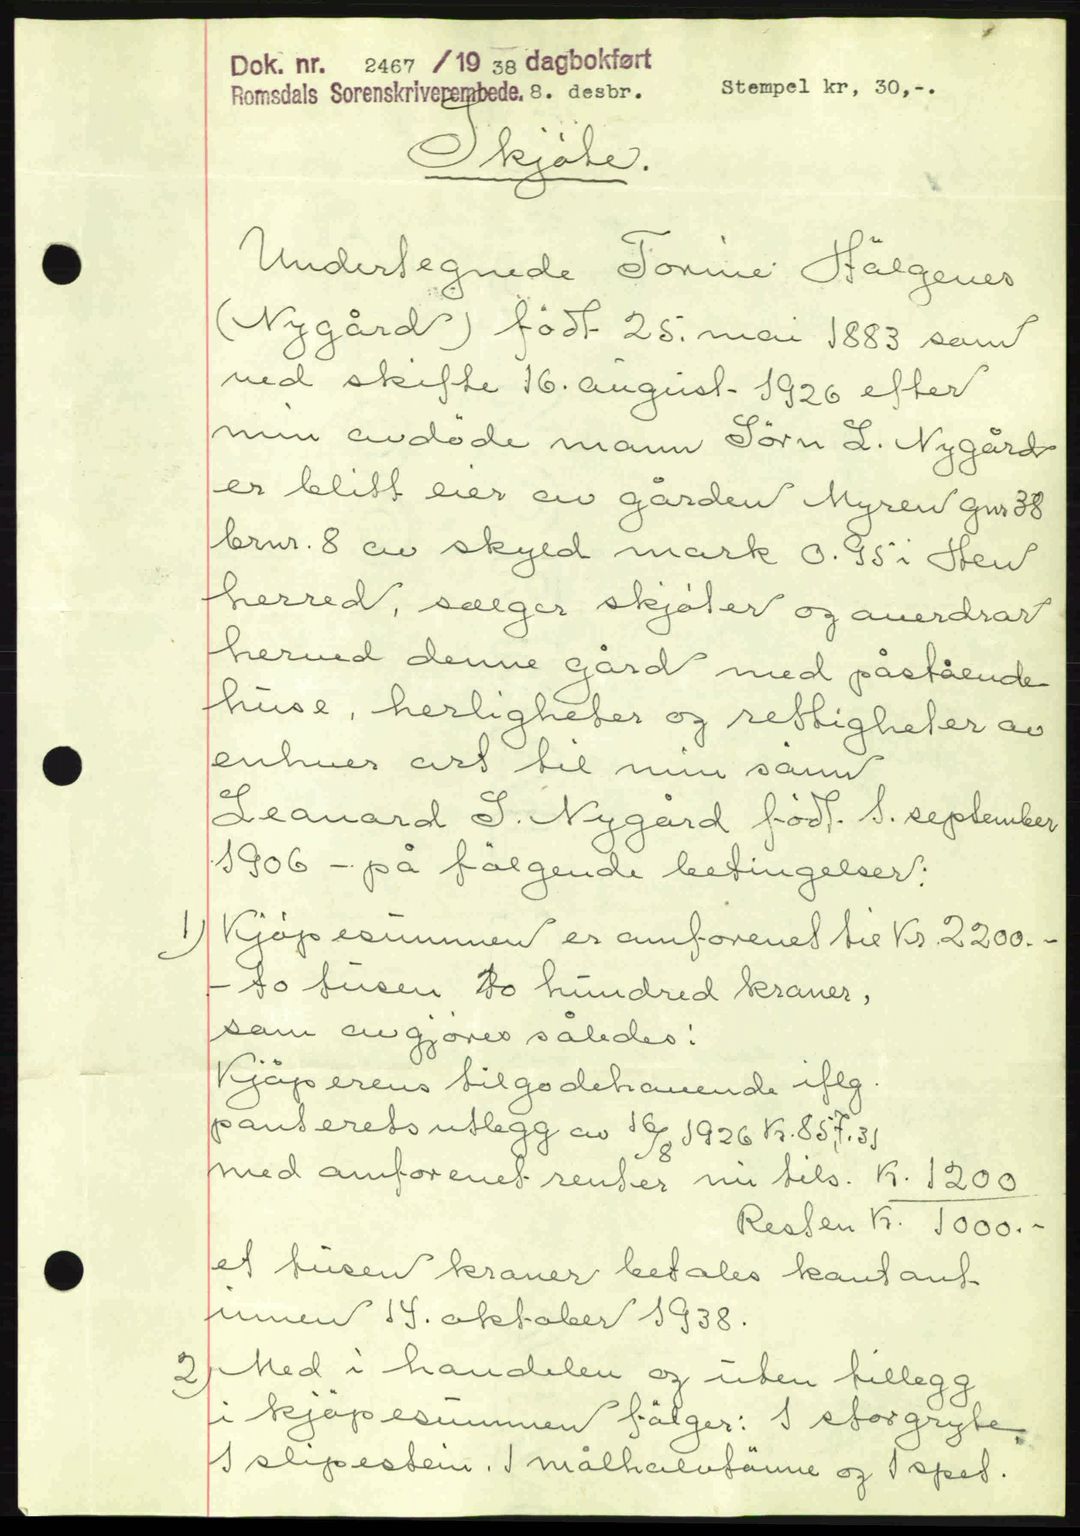 Dok. nr. 2467 /19 38 dagbokført
Romsdals Sorenskriverembede. 8. desbr. Stempel kr, 30,-.
Skjöte.
Undertegnede Torine Hälgenes
(Nygård) födt 25. mai 1883 som
ved skifte 16. august 1926 efter
min avdöde mann Sörn L. Nygård
er blitt eier av gården Myren gnr 38
brnr. 8 av skyld mark 0.95 i Hen
herred, sælger skjöter og overdrar
herved denne gård med påstående
huse, herligheter og rettigheter av
enhver art til min sönn
Leonard S. Nygård födt 1. september
1906 - på fölgende betingelser:
1) Kjöpesummen er omforenet til Kr. 2200.-
- to tusen to hundred kroner,
som avgjöres således:
Kjöperens tilgodehavende iflg.
panterets utlegg av 16/8 1926 Kr. 857.31
med omforenet renter nu tils. Kr. 1200
Resten Kr. 1000.-
et tusen kroner betales kontant
innen 14. oktober 1938.
2) Med i handelen og uten tillegg
i kjöpesummen fölger: 1 storgryte,
1 slipestein. 1 målhalvtönne og 1 spet.